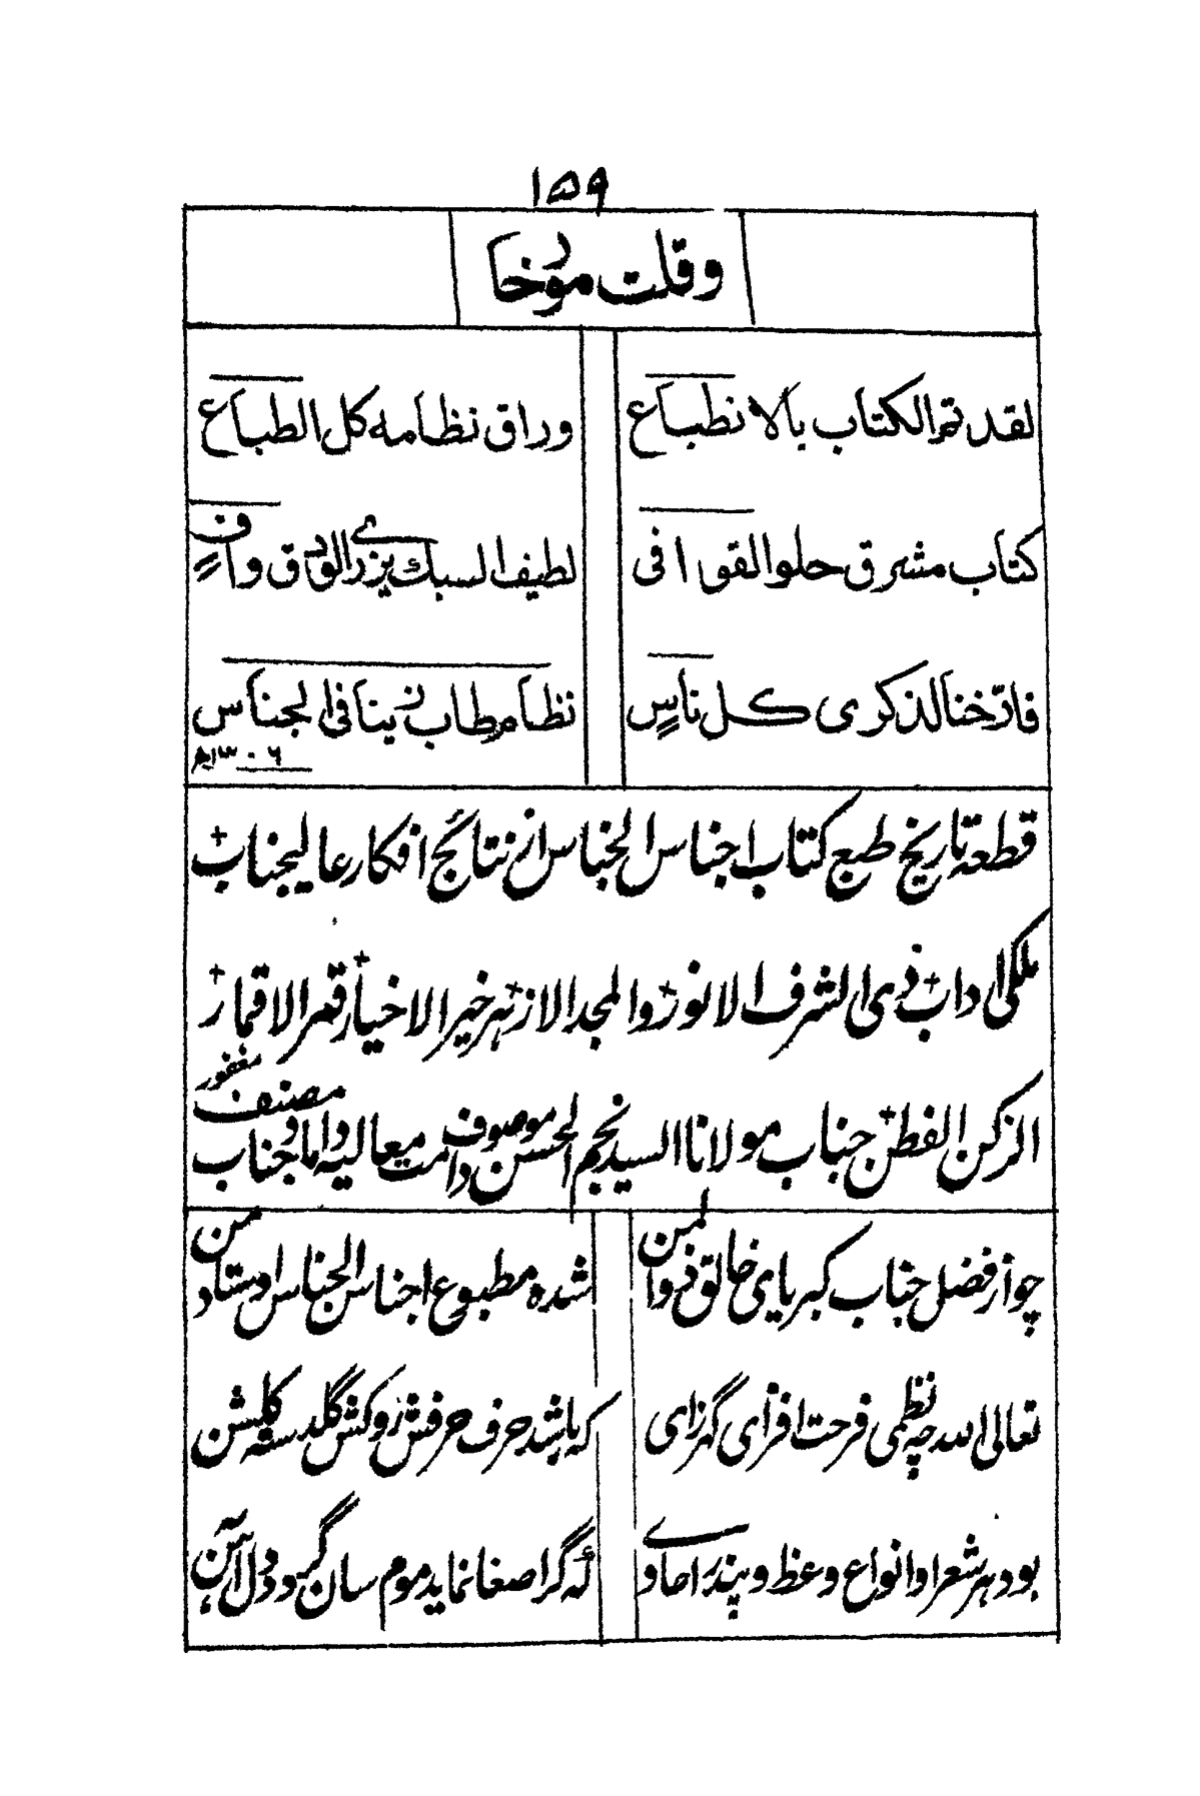 ۱۵۹
وقلت مؤرخا
لقد تم الكتاب بالانطباع
وراق نظامه كل الطباع
كتاب مشرق حلو القوافى
لطيف السبك يزرى الودق واف
فارّخنا لذكرى كل ناسٍ
نظام طاب زينا فى الجناس
۱۳۰۶ھ
قطعه تاریخ طبع کتاب اجناس الجناس از نتائج افکار عالیجناب
ملکی اداب ذی الشرف الانور والمجد الازہر خیر الاخیار قمر الاقمار
الزکن الفطن جناب مولانا السید نجم الحسن موصوف دامت معالیہ داماد جناب مصنف مغفور
چو از فضل جناب کبریای خالق ذوالمن
شده مطبوع اجناس الجناس اوستاد من
تعالی الله چه نظمی فرحت افزای گہرزای
که باشد حرف حرفش روکش گلدسته گلشن
بود ہر شعر او انواع وعظ و پند را حاوی
که گر اصغا نماید موم سان گردد دل آہن